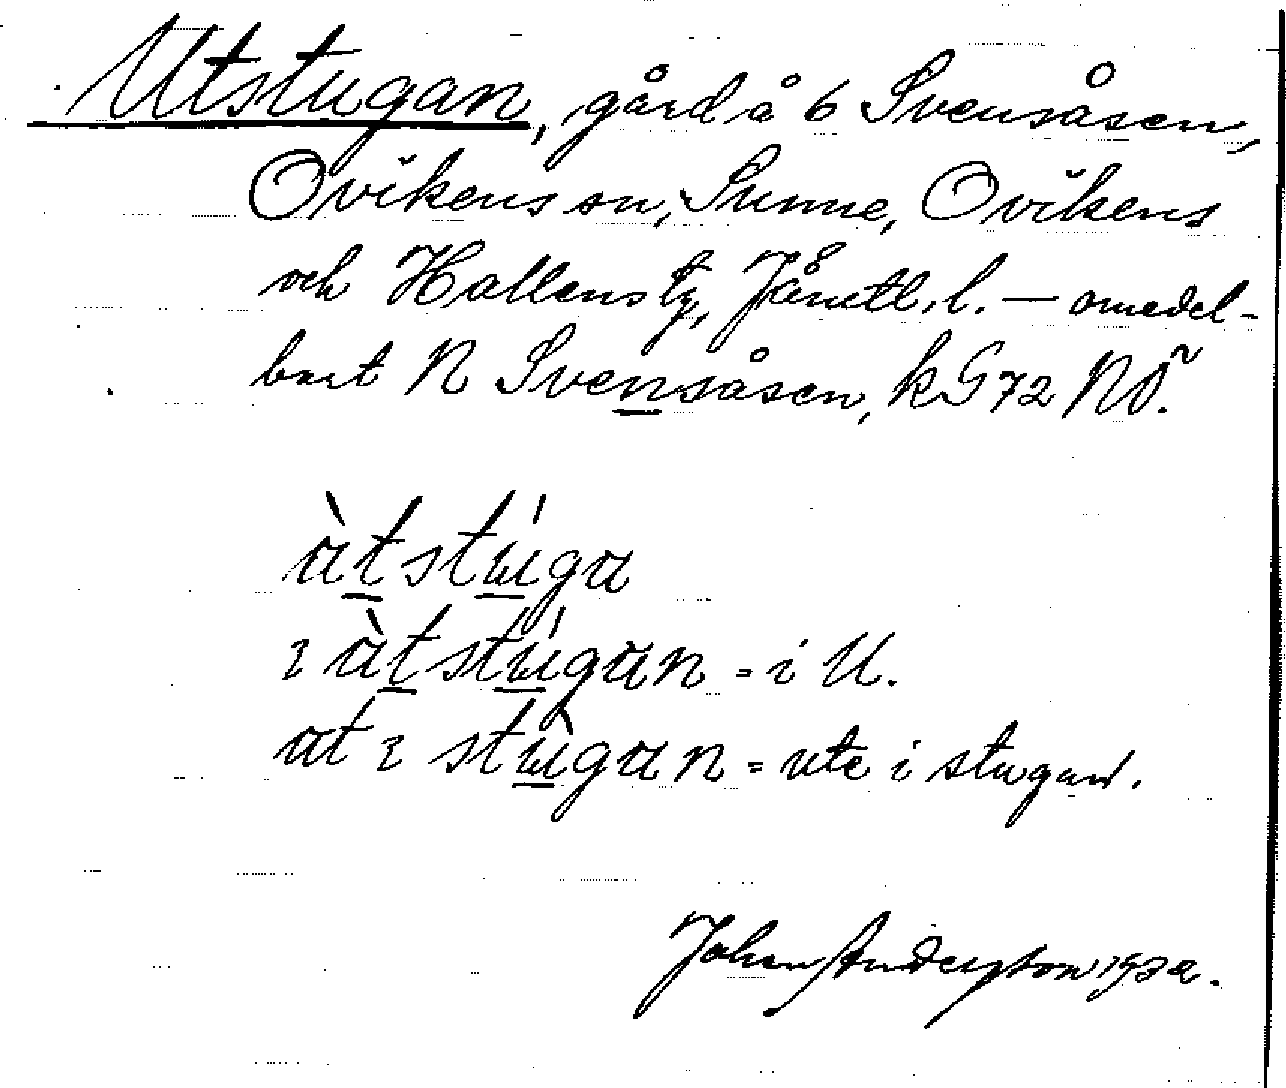 Utstugan, gård å 6 Svensåsen,
Ovikens sn, Sunne, Ovikens
och Hallens tg, Jämtl. l. — omedel-
bart N Svensåsen, k G 72 NÖ.
àtstúga
ı àtstúgan = i U.
at ı stùgan = ute i stugan.
Johan Andersson 1932.